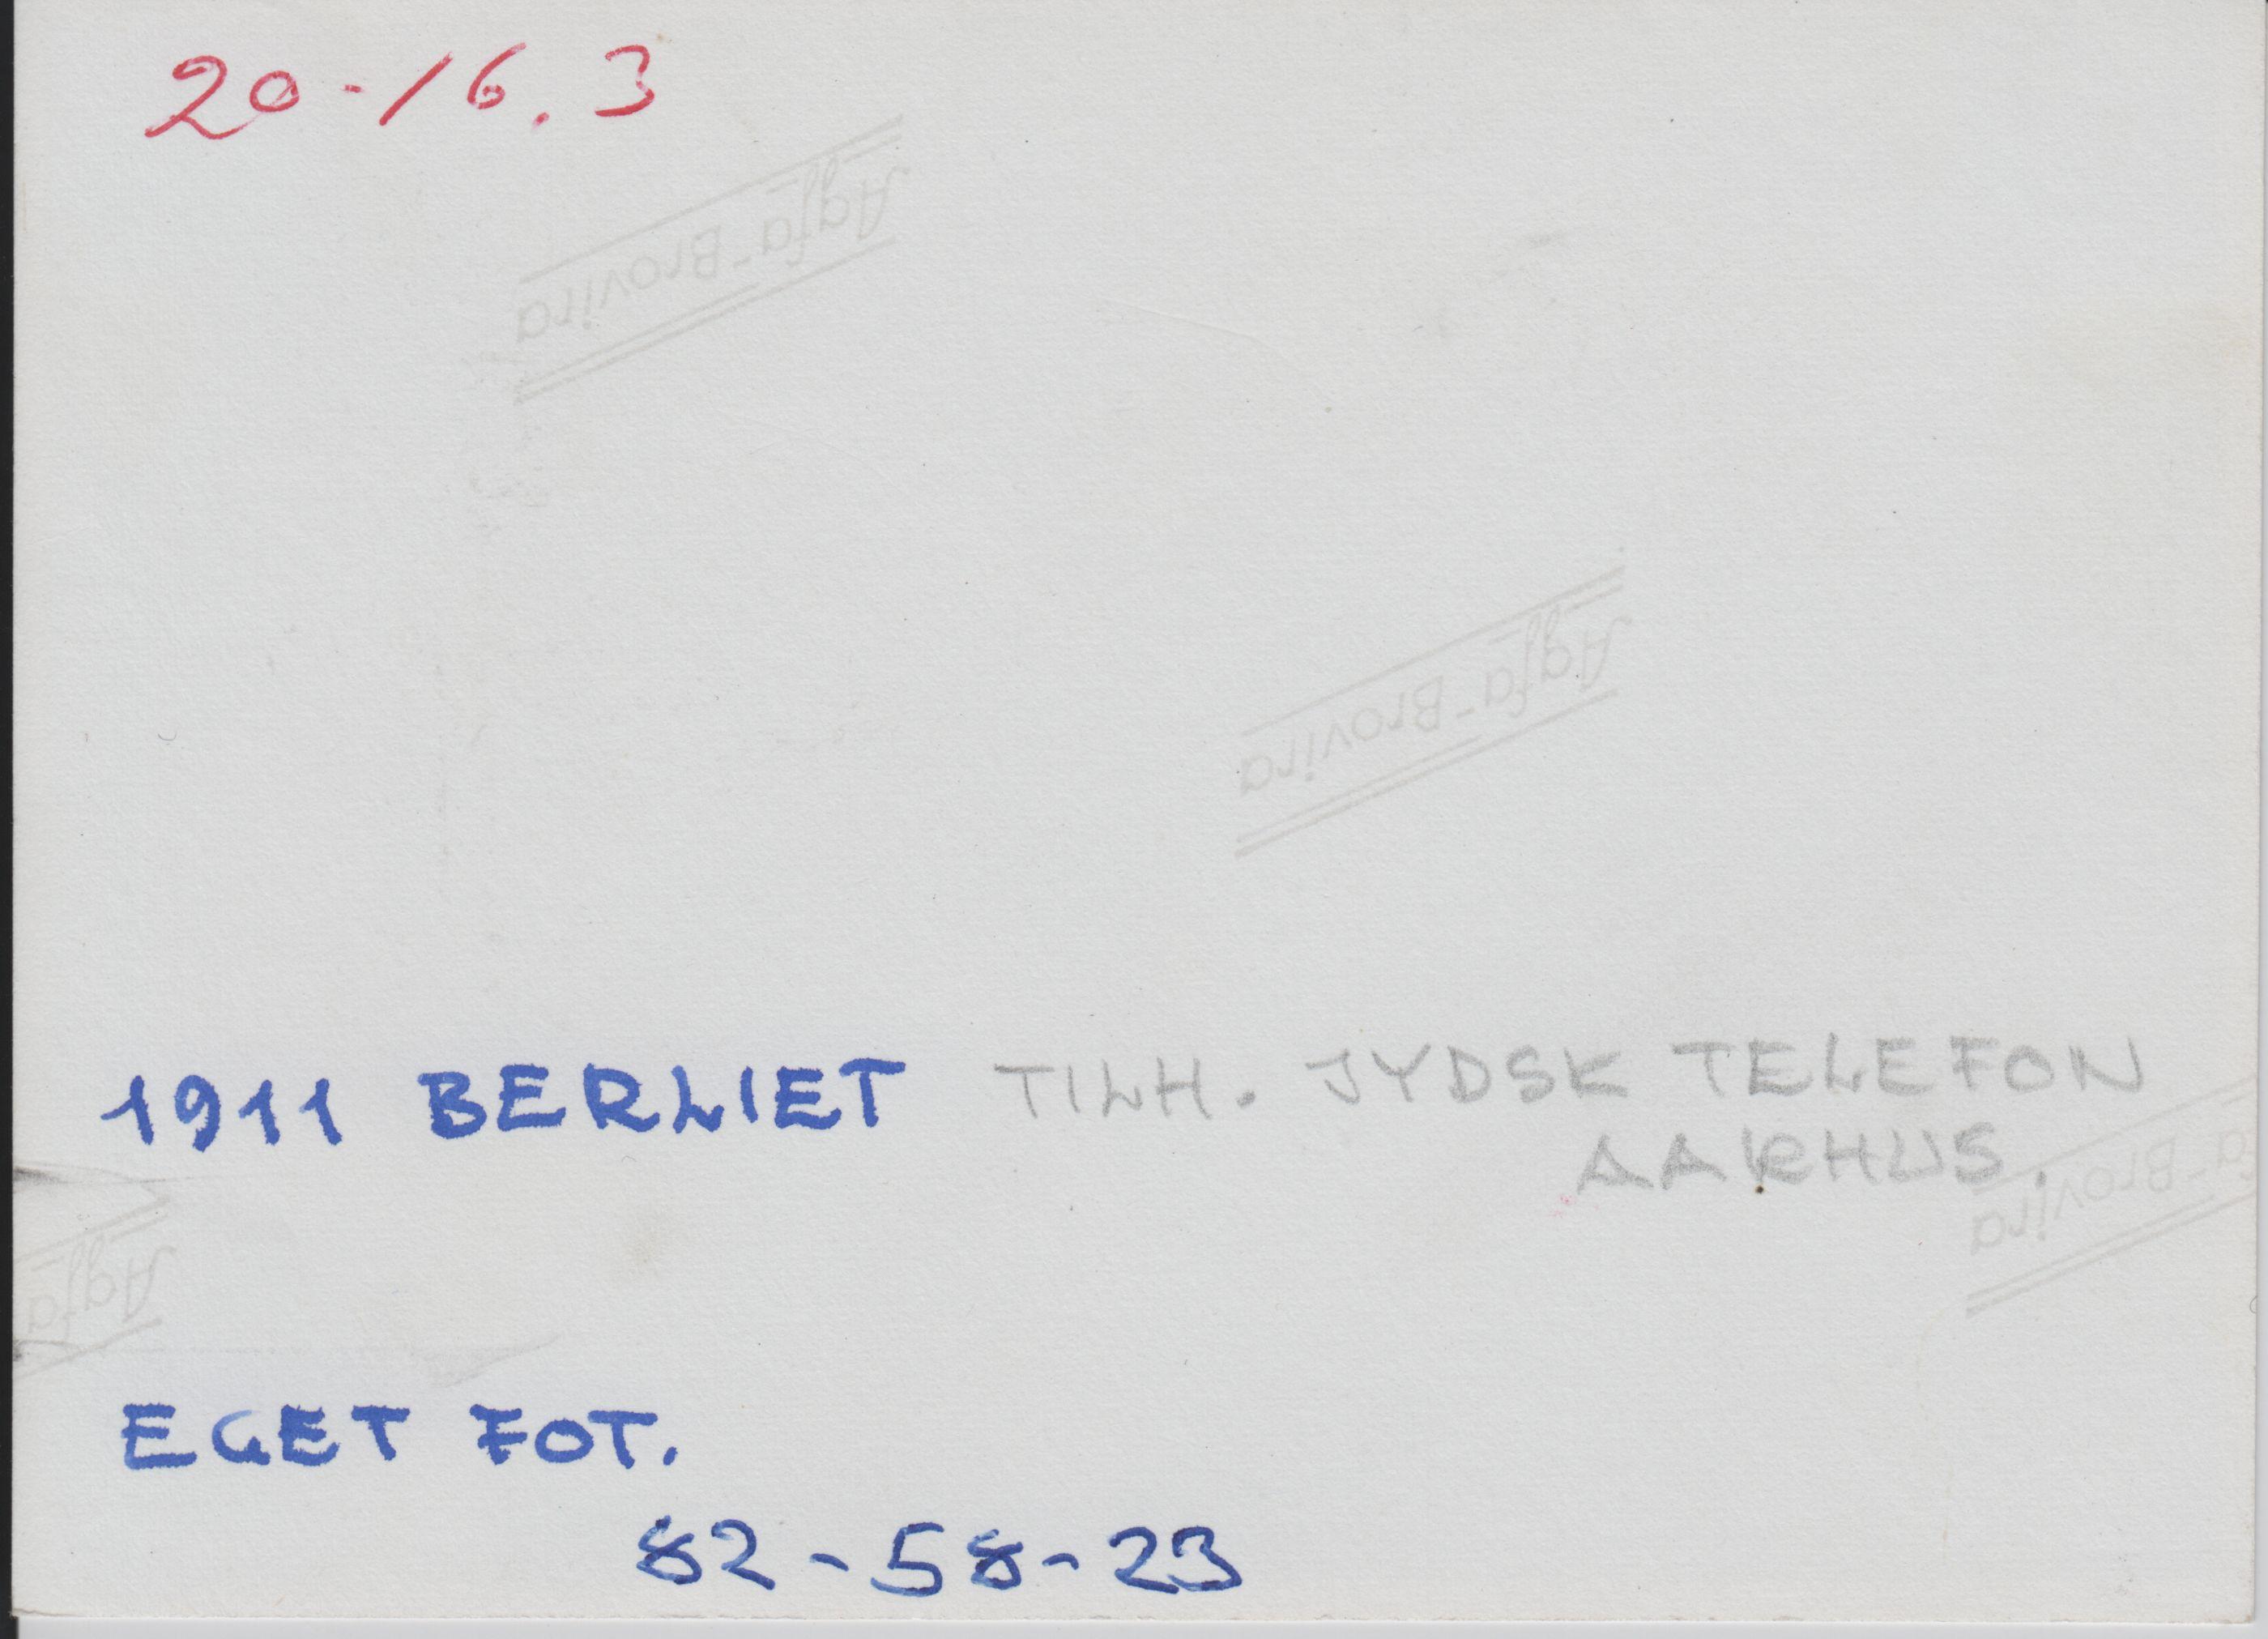 20-16.3
Agfa-Brovira
Agfa-Brovira
1911 BERLIET TILH. JYDSK TELEFON
AARHUS.
fa-Brovira
Agfa
EGET FOT.
82-58-23